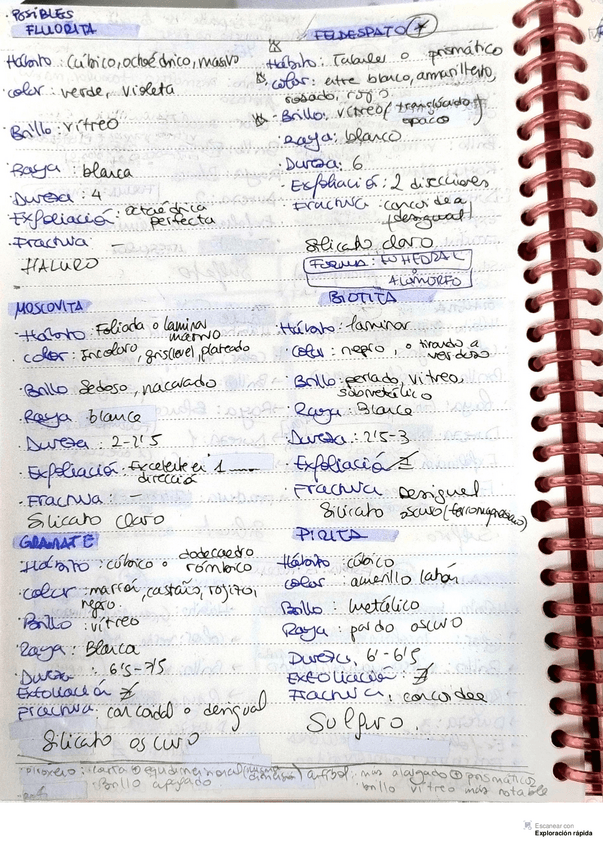 POSIBLES
FLUORITA
Hábito: Cúbico, octoédrico, masivo
color: verde, violeta
Brillo: vítreo
Raya: blanca
Dureza: 4
Exfoliación: octaédrica
perfecta
Fractura —
HALURO
FELDESPATO
Hábito: Tabular o prismático
color: entre blanco, amarillento,
rosado, rojo
Brillo: vítreo (translúcido y
opaco
Raya: blanco
Dureza: 6
Exfoliación: 2 direcciones
Fractura concoidea
desigual
Silicato claro
FORMA: EUHEDRAL
o ALOMORFO
MOSCOVITA
Hábito: Foliada o laminar
masivo
color: Incoloro, gris level, plateado
Brillo Sedoso, nacarado
Raya blanca
Dureza: 2-2'5
Exfoliación: Excelente en 1
dirección
Fractura: -
Silicato claro
BIOTITA
Hábito: laminar
color: negro, o tirando a
verdoso
Brillo: perlado, vítreo,
submetálico
Raya: Blanca
Dureza: 2'5-3
Exfoliación 1
Fractura Desigual
Silicato oscuro (ferromagnesiano)
GRANATE
Hábito: cúbico o dodecaedro
rómbico
color: marrón, castaño, rojizo,
negro.
Brillo vítreo
Raya: Blanca
Dureza: 6'5-7'5
Exfoliación
Fractura: concoidal o desigual
Silicato oscuro
PIRITA
Hábito: cúbico
color: amarillo latón
Brillo: metálico
Raya: pardo oscuro
Dureza, 6-6'5
Exfoliación:
Fractura, concoidea
Sulfuro.
piroxeno: corta
anfíbol: mas alargado prismático
Brillo apagado
brillo vítreo más notable
Escanear con
Exploración rápida